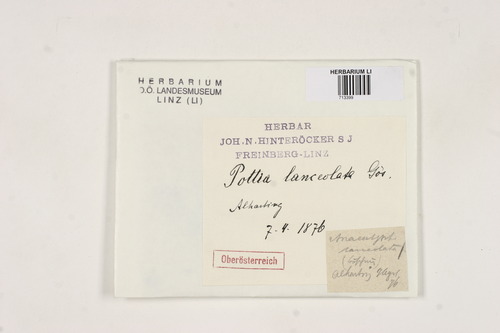 HERBARIUM
O.Ö. LANDESMUSEUM
LINZ (LI)
HERBARIUM LI
HERBAR
JOH. N. HINTERÖCKER S J
FREINBERG-LINZ
Pottia lanceolata
Alharting
7. 4. 1876
Oberösterreich
lanceolata
Alharting
76